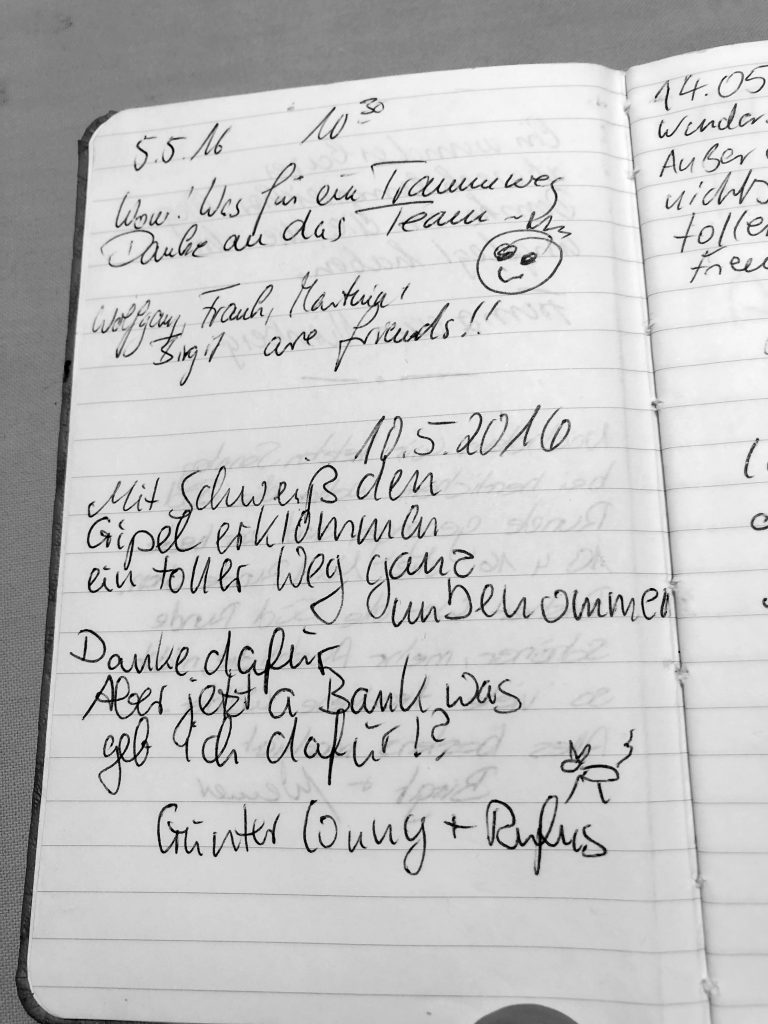 5.5.16 10³⁰
Wow! Was für ein Traumweg
Danke an das Team
Wolfgang, Frank, Martina,
Birgit are friends!!
10.5.2016
Mit Schweiß den
Gipfel erklommen
ein toller Weg ganz
unbenommen
Danke dafür
Aber jetzt a Bank, was
geb ich dafür!?
Günter Conny + Rufus
14.05
wunder
Außer
nichts
toller